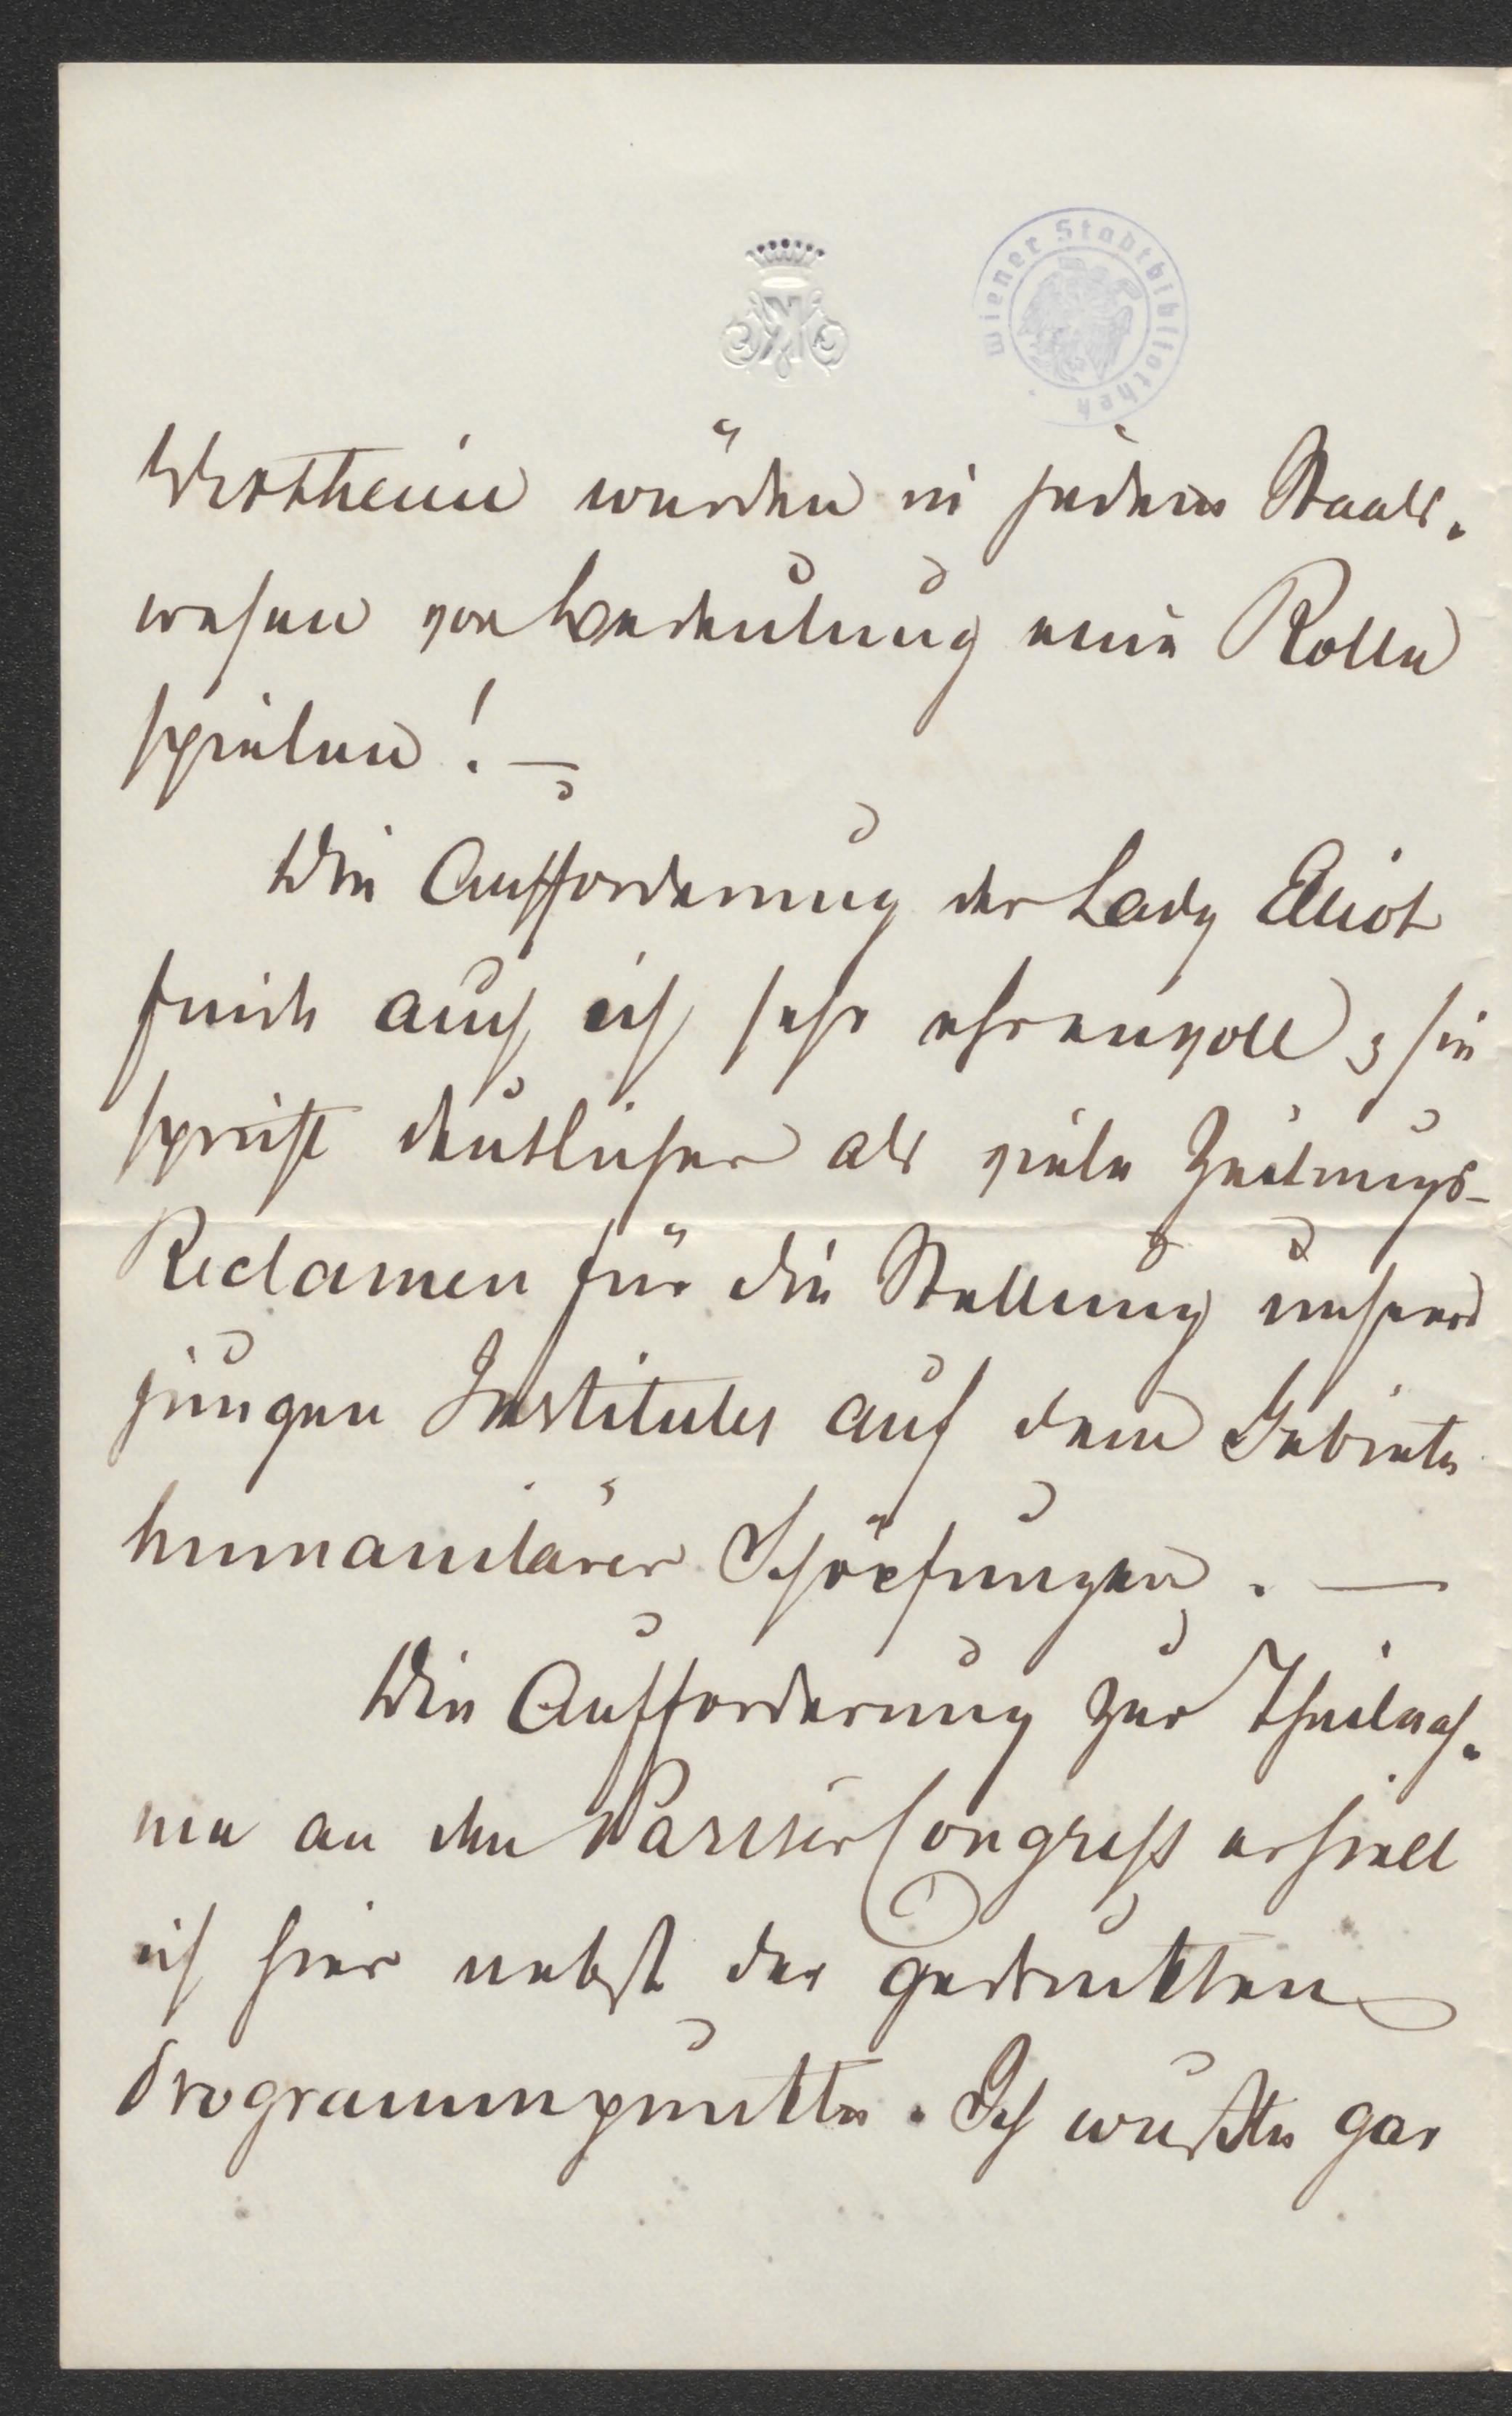 Wiener Stadtbibliothek
Wertheim würden in jedem Staats-
wesen von Bedeutung eine Rolle
spielen! —
Die Aufforderung der Lady Elliot
finde auch ich sehr ehrenvoll; sie
spricht deutlicher als viele Zeitungs-
Reclamen für die Stellung unseres
jungen Institutes auf dem Gebiete
humanitärer Schöpfungen. —
Die Aufforderung zur Theilnah-
me an den Pariser Congreß erhielt
ich hier nebst der gedruckten
Programmpunkte. Ich wußte gar